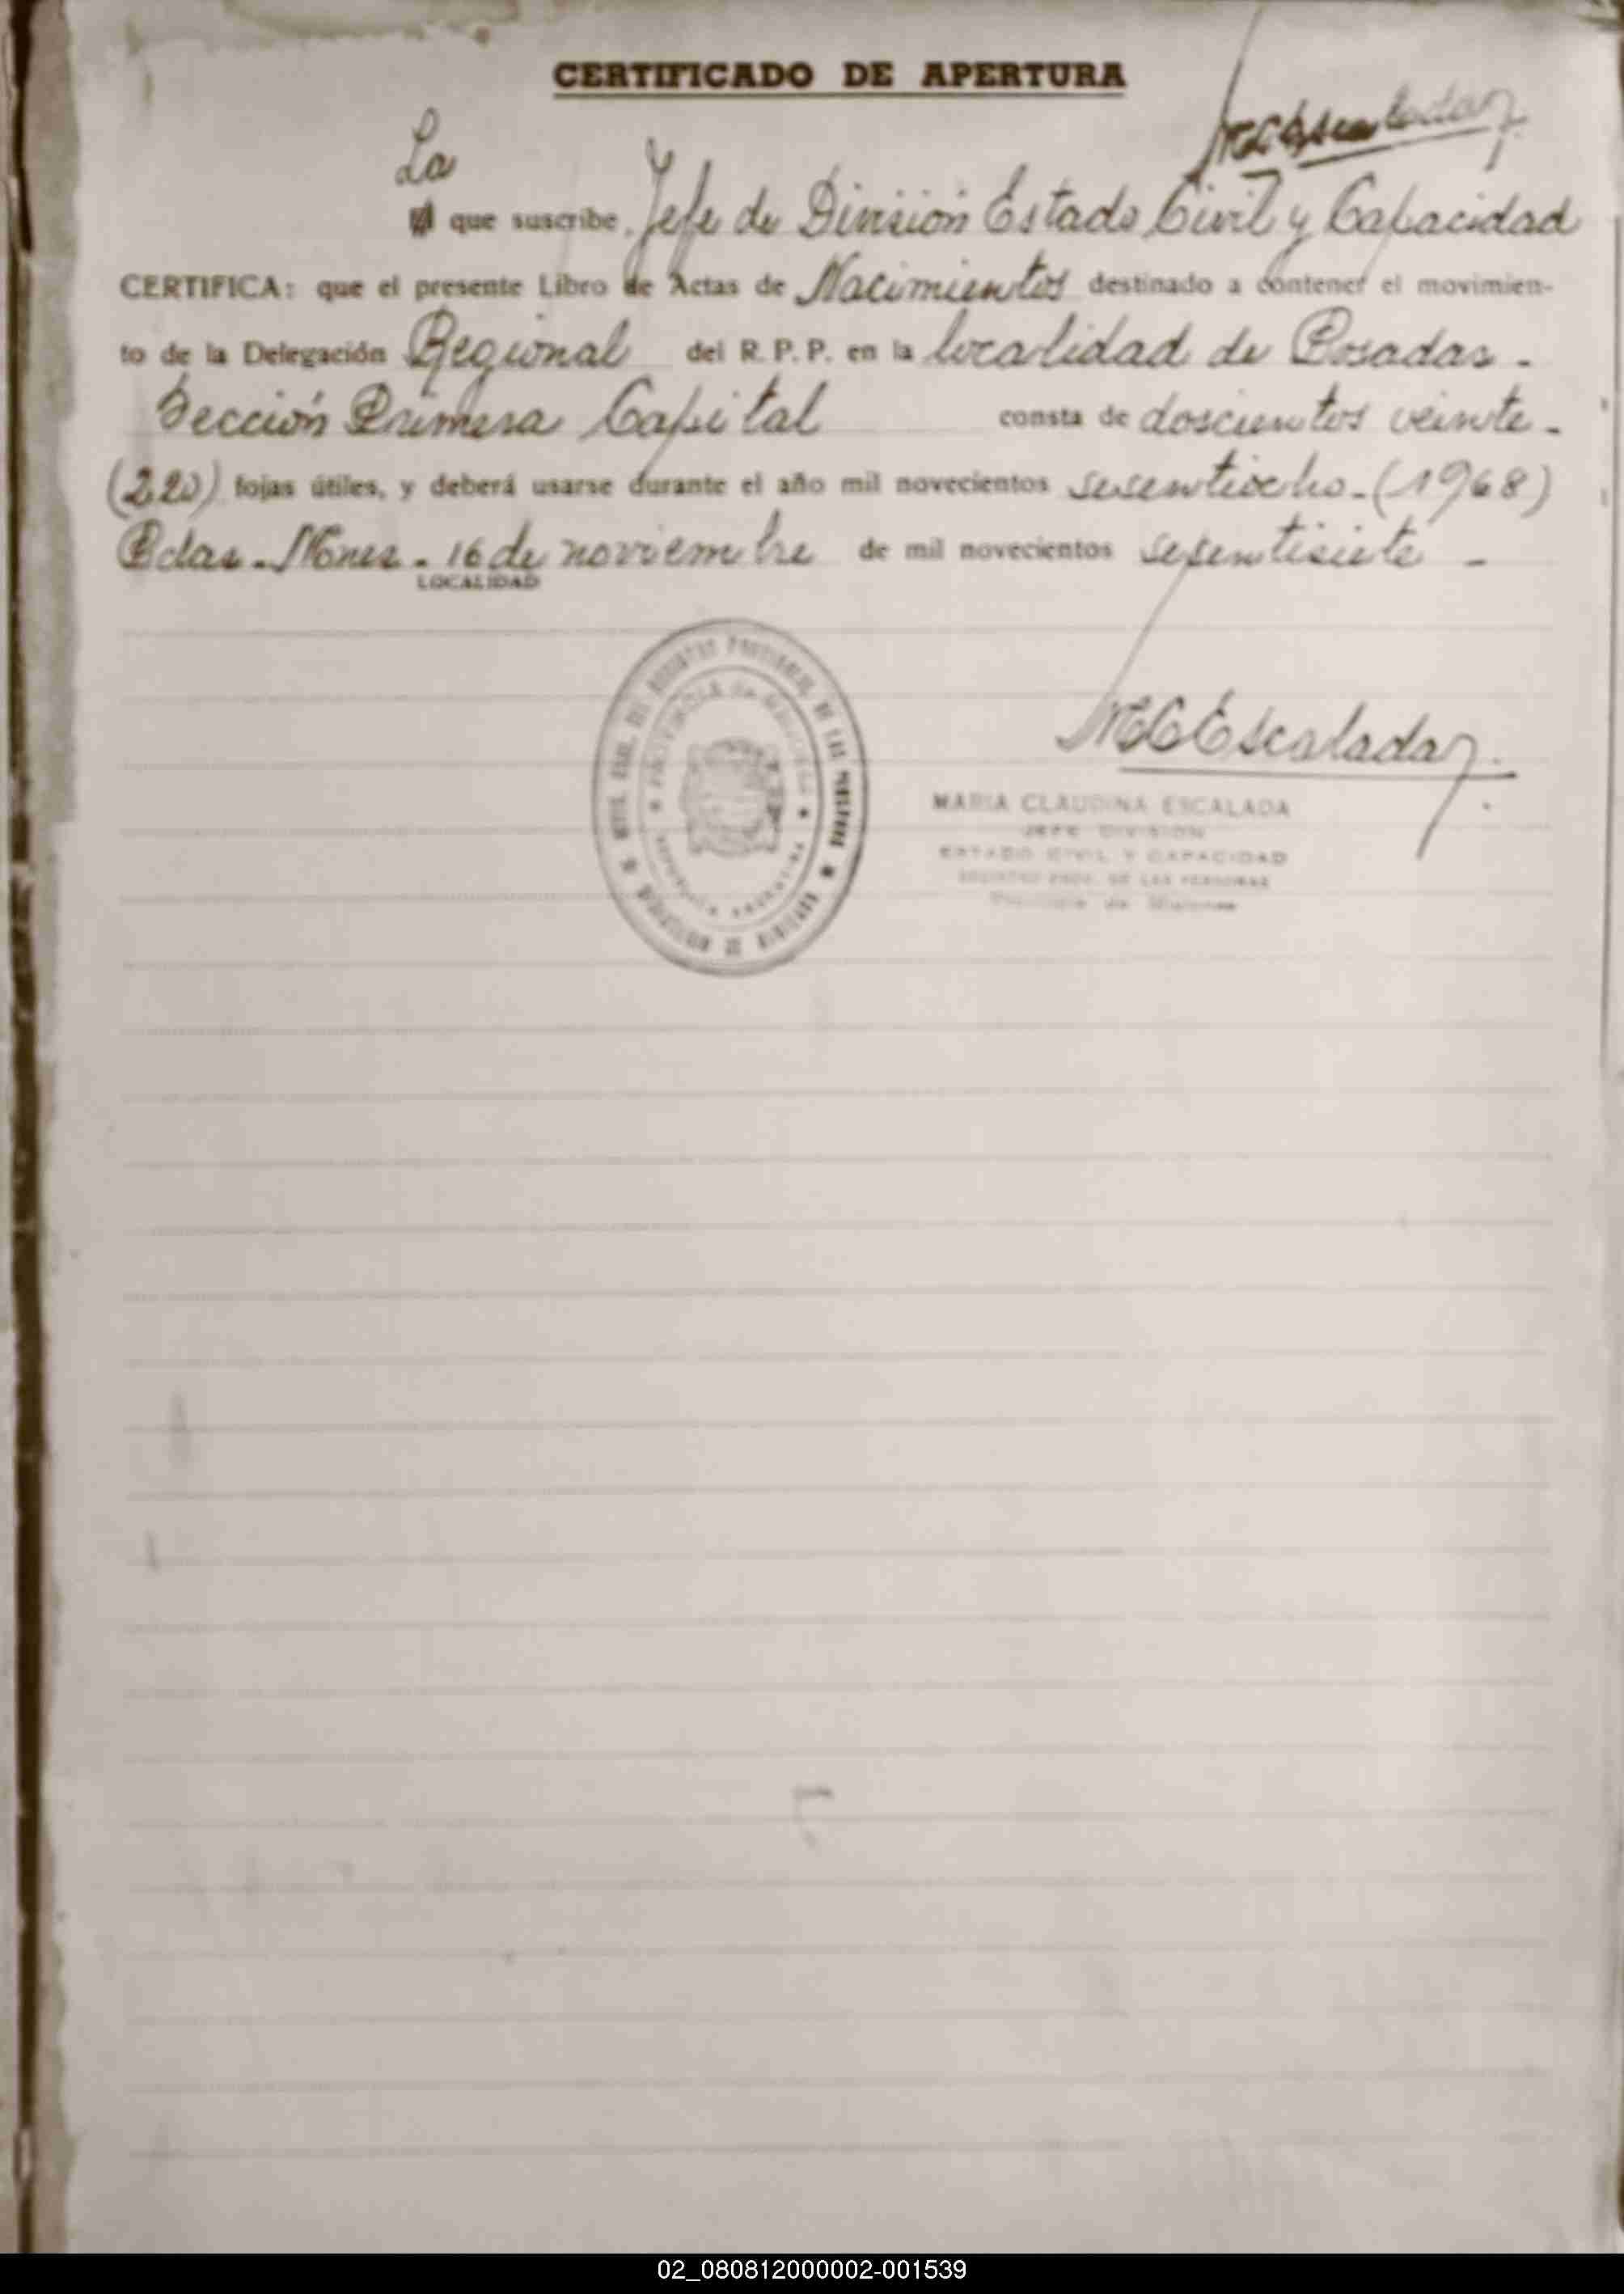 CERTIFICADO DE APERTURA
MCEscalada
La
El que suscribe, Jefe de División Estado Civil y Capacidad
CERTIFICA: que el presente Libro de Actas de Nacimientos destinado a contener el movimien-
to de la Delegación Regional del R. P. P. en la localidad de Posadas -
Sección Primera Capital consta de doscientos veinte -
(220) fojas útiles, y deberá usarse durante el año mil novecientos sesentiocho - (1968)
Pdas - Mnes - 16 de noviembre de mil novecientos sesentisiete -
LOCALIDAD
PROVINCIA de MISIONES
REPUBLICA ARGENTINA
MCEscalada
MARIA CLAUDINA ESCALADA
JEFE DIVISION
ESTADO CIVIL Y CAPACIDAD
REGISTRO PROV. DE LAS PERSONAS
Provincia de Misiones
02_080812000002-001539